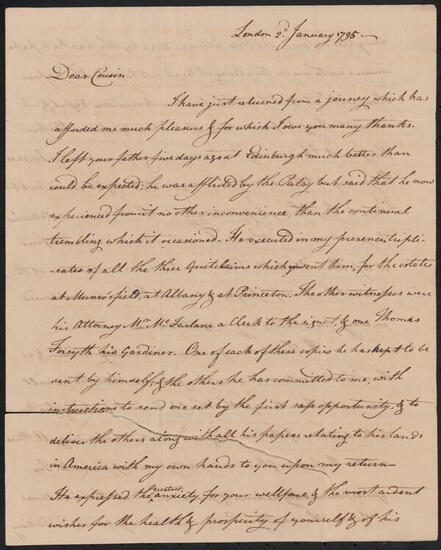 London 2d. January 1795 —
Dear Cousin
I have just returned from a journey which has
afforded me much pleasure & for which I owe you many thanks.
I left your father five days ago at Edinburgh much better than
could be expected; he was afflicted by the Palsy but said that he now
experienced from it no other inconvenience than the continual
trembling which it occasioned. He executed in my presence tripli-
cates of all the three Quitclaims which you sent him, for the estates
at Munrosfield, at Albany & at Princeton. The other witnesses were
his Attorney Mr. McFarlane a Clerk to the signet, & one Thomas
Forsyth his Gardiner. One of each of these copies he has kept to be
sent by himself, & the others he has committed to me, with
instructions to send one set by the first safe opportunity, & to
deliver the others along with all his papers relating to his lands
in America with my own hands to you upon my return —
He expressed the greatest anxiety for your wellfare, & the most ardent
wishes for the health & prosperity of yourself & of his